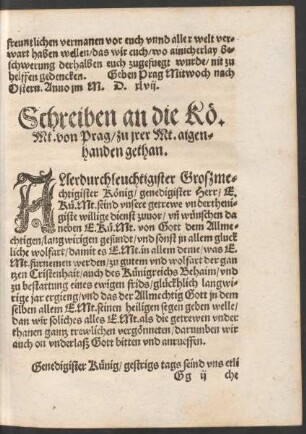 freuntlichen vermanen vor euch vnnd aller welt ver-
wart haben wellen/das wir euch/wo ainicherlay be-
schwerung derhalben euch zugefuegt wurde/nit zu
helffen gedencken. Geben Prag Mitwoch nach
Ostern. Anno jm M. D. xlvij.
Schreiben an die Kö.
Mt. von Prag/zu jrer Mt. aigen-
handen gethan.
ALlerdurchleuchtigister Großme-
chtigister König/genedigister Herr/E.
Kü.Mt. seind vnsere getrewe vndertheni-
giste willige dienst zuuor/vñ wünschen da
neben E.Kü.Mt. von Gott dem Allme-
chtigen/langwirigen gesund/vnd sonst jn allem glück
liche wolfart/damit es E.Mt. in allem deme/was E.
Mt. fürnemen werden/zu guttem vnd wolfart der gan
tzen Cristenhait/auch des Künigreichs Behaim/vnd
zu bestattung eines ewigen frids/glückhlich langwi-
rige jar ergieng/vnd das der Allmechtig Gott jn dem
selben allem E.Mt. seinen heiligen segen geben welle/
dan wir soliches alles E.Mt. als die getrewen vnder
thanen gantz trewlichen vergönneten/darumben wir
auch on vnderlaß Gott bitten vnd anrueffen.
Genedigister Künig/gestrigs tags seind vns etli
Gg ij che